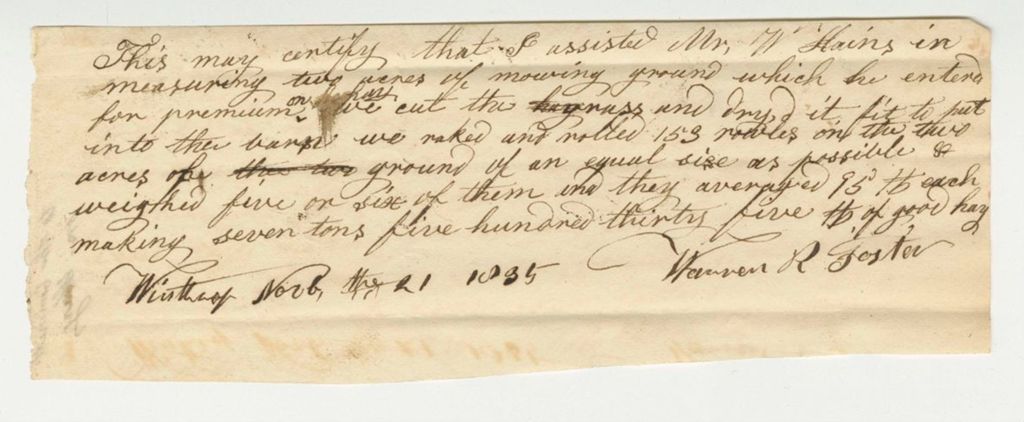 This may certify that I assisted Mr, W Hains in
measuring two acres of mowing ground which he enterd
for premium on hay we cut the grass and dry,d it fit to put
into the barn we raked and rolled 153 robles on the two
acres of ground of an equal size as possible &
weighed five or six of them and they averaged 95 ℔ each
making seven tons five hundred thirty five ℔ of good hay
Winthrop Novb, the 21 1835 Warren R Foster